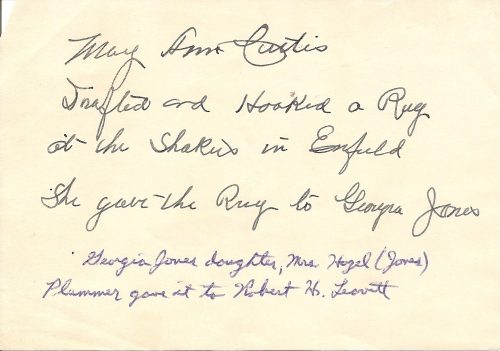 Mary Ann Curtis
Drafted and Hooked a Rug
at the Shakers in Enfield
She gave the Rug to Georgia Jones
Georgia Jones daughter, Mrs Hazel (Jones)
Plummer gave it to Robert H. Leavitt